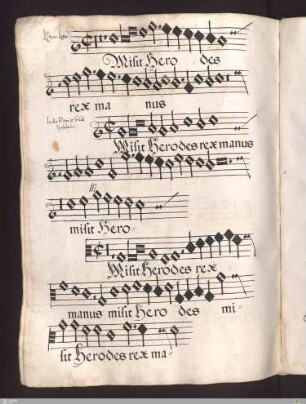 Misit Hero des
rex ma nus
Misit Herodes rex manus
misit Hero
Misit Herodes rex
manus misit Hero des mi
sit Herodes rex ma